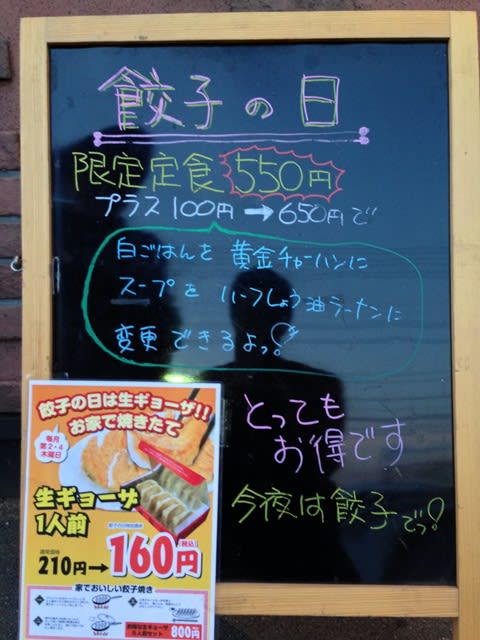 餃子の日
限定定食 550円
プラス 100円→650円で
白ごはんを 黄金チャーハンに
スープを ハーフしょう油ラーメンに
変更できるよっ!
とっても
お得です
今夜は餃子でっ!
餃子の日は生ギョーザ!!
お家で焼きたて
毎月
第2・4
木曜日
生ギョーザ
1人前
通常価格
210円→160円
(税込)
家でおいしい餃子焼き
800円